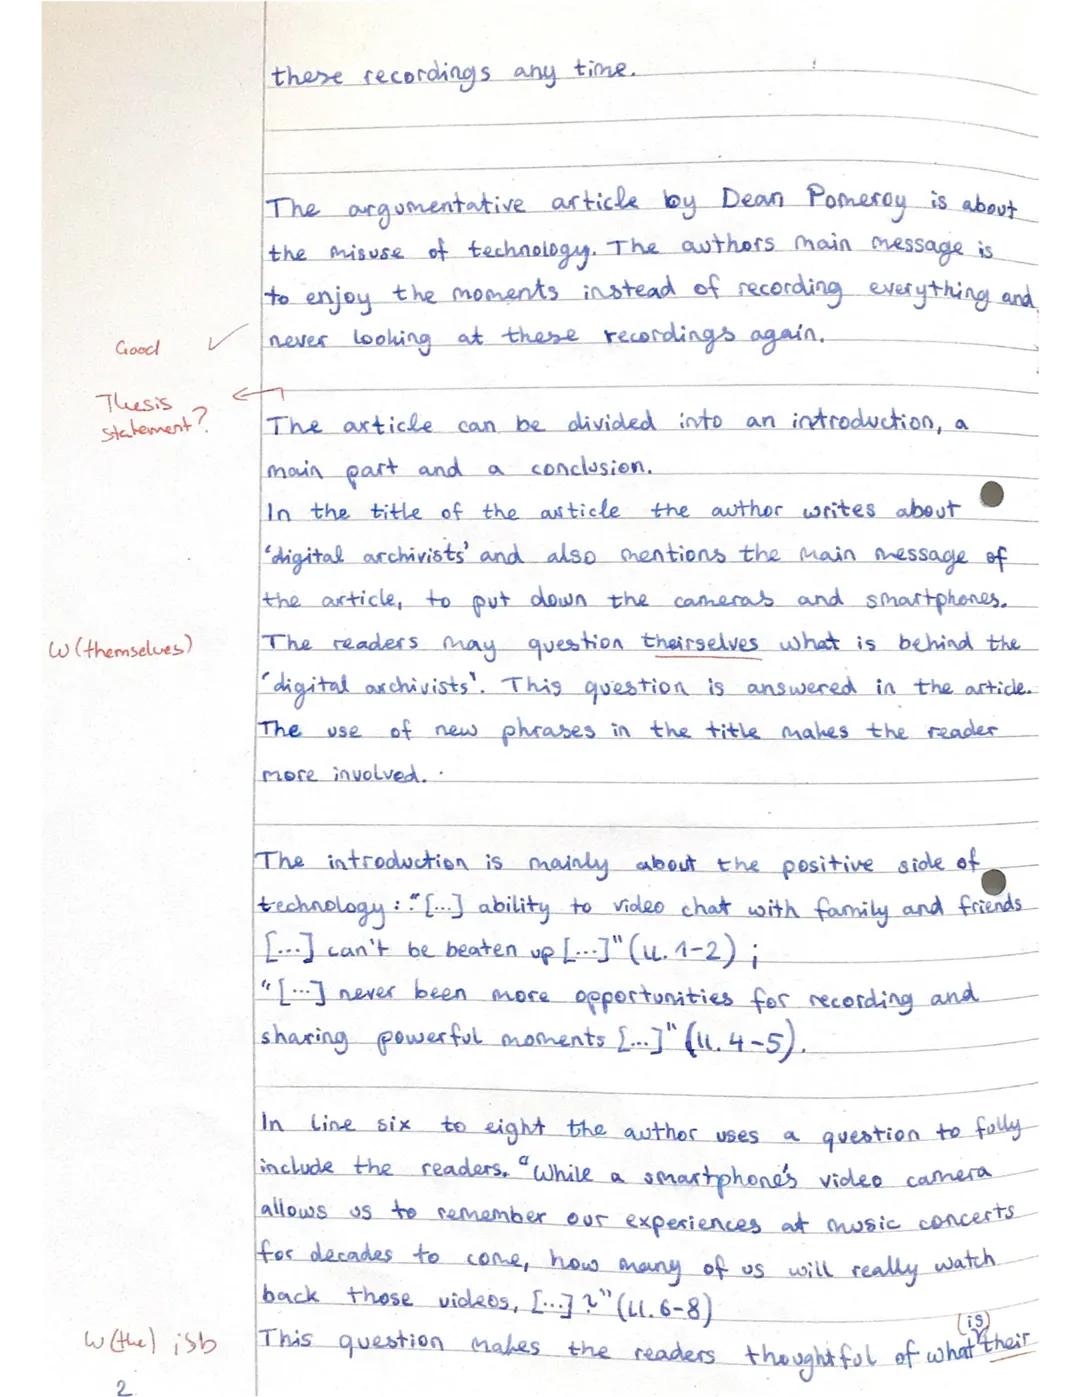 these recordings any time.
The argumentative article by Dean Pomeroy is about
the misuse of technology. The authors main message is
to enjoy the moments instead of recording everything and
Good ✓ never looking at these recordings again.
Thesis
statement?
The article can be divided into an introduction, a
main part and a conclusion.
In the title of the article the author writes about
'digital archivists' and also mentions the main message of
the article, to put down the cameras and smartphones.
W (themselves) The readers may question theirselves what is behind the
'digital archivists'. This question is answered in the article.
The use of new phrases in the title makes the reader
more involved.
The introduction is mainly about the positive side of
technology: "[...] ability to video chat with family and friends
[...] can't be beaten up [...]" (ll. 1-2);
"[...] never been more opportunities for recording and
sharing powerful moments [...]" (ll. 4-5).
In line six to eight the author uses a question to fully
include the readers. "While a smartphone's video camera
allows us to remember our experiences at music concerts
for decades to come, how many of us will really watch
back those videos, [...]?" (ll. 6-8)
(is)
W (the) isb This question makes the readers thoughtful of what their
2